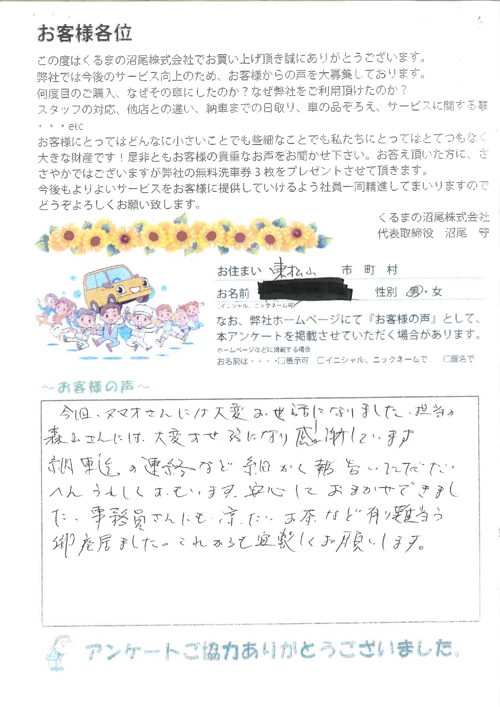 お客様各位
この度はくるまの沼尾株式会社でお買い上げ頂き誠にありがとうございます。
弊社では今後のサービス向上のため、お客様からの声を大募集しております。
何度目のご購入、なぜその車にしたのか？なぜ弊社をご利用頂けたのか？
スタッフの対応、他店との違い、納車までの日取り、車の品ぞろえ、サービスに関する事
・・・etc
お客様にとってはどんなに小さいことでも些細なことでも私たちにとってはとてつもなく
大きな財産です！是非ともお客様の貴重なお声をお聞かせ下さい。お答え頂いた方に、さ
さやかではございますが弊社の無料洗車券３枚をプレゼントさせて頂きます。
今後もよりよいサービスをお客様に提供していけるよう社員一同精進してまいりますので
どうぞよろしくお願い致します。
くるまの沼尾株式会社
代表取締役 沼尾 守
お住まい 東松山 市 町 村
お名前 性別 男・女
(イニシャル、ニックネーム可)
なお、弊社ホームページにて『お客様の声』として、
本アンケートを掲載させていただく場合があります。
ホームページなどに掲載する場合
お名前は・・・・□表示可 □イニシャル、ニックネームで □匿名で
～お客様の声～
今回、ヌマオさんには大変お世話になりました。担当の
森山さんには、大変お世話になり感謝しています
納車迄の連絡など細かく報告いただだい
へんうれしくおもいます。安心しておまかせできまし
た。事務員さんにも冷たいお茶など有り難とう
御座居ました。これからも宜敷しくお願いします。
アンケートご協力ありがとうございました。